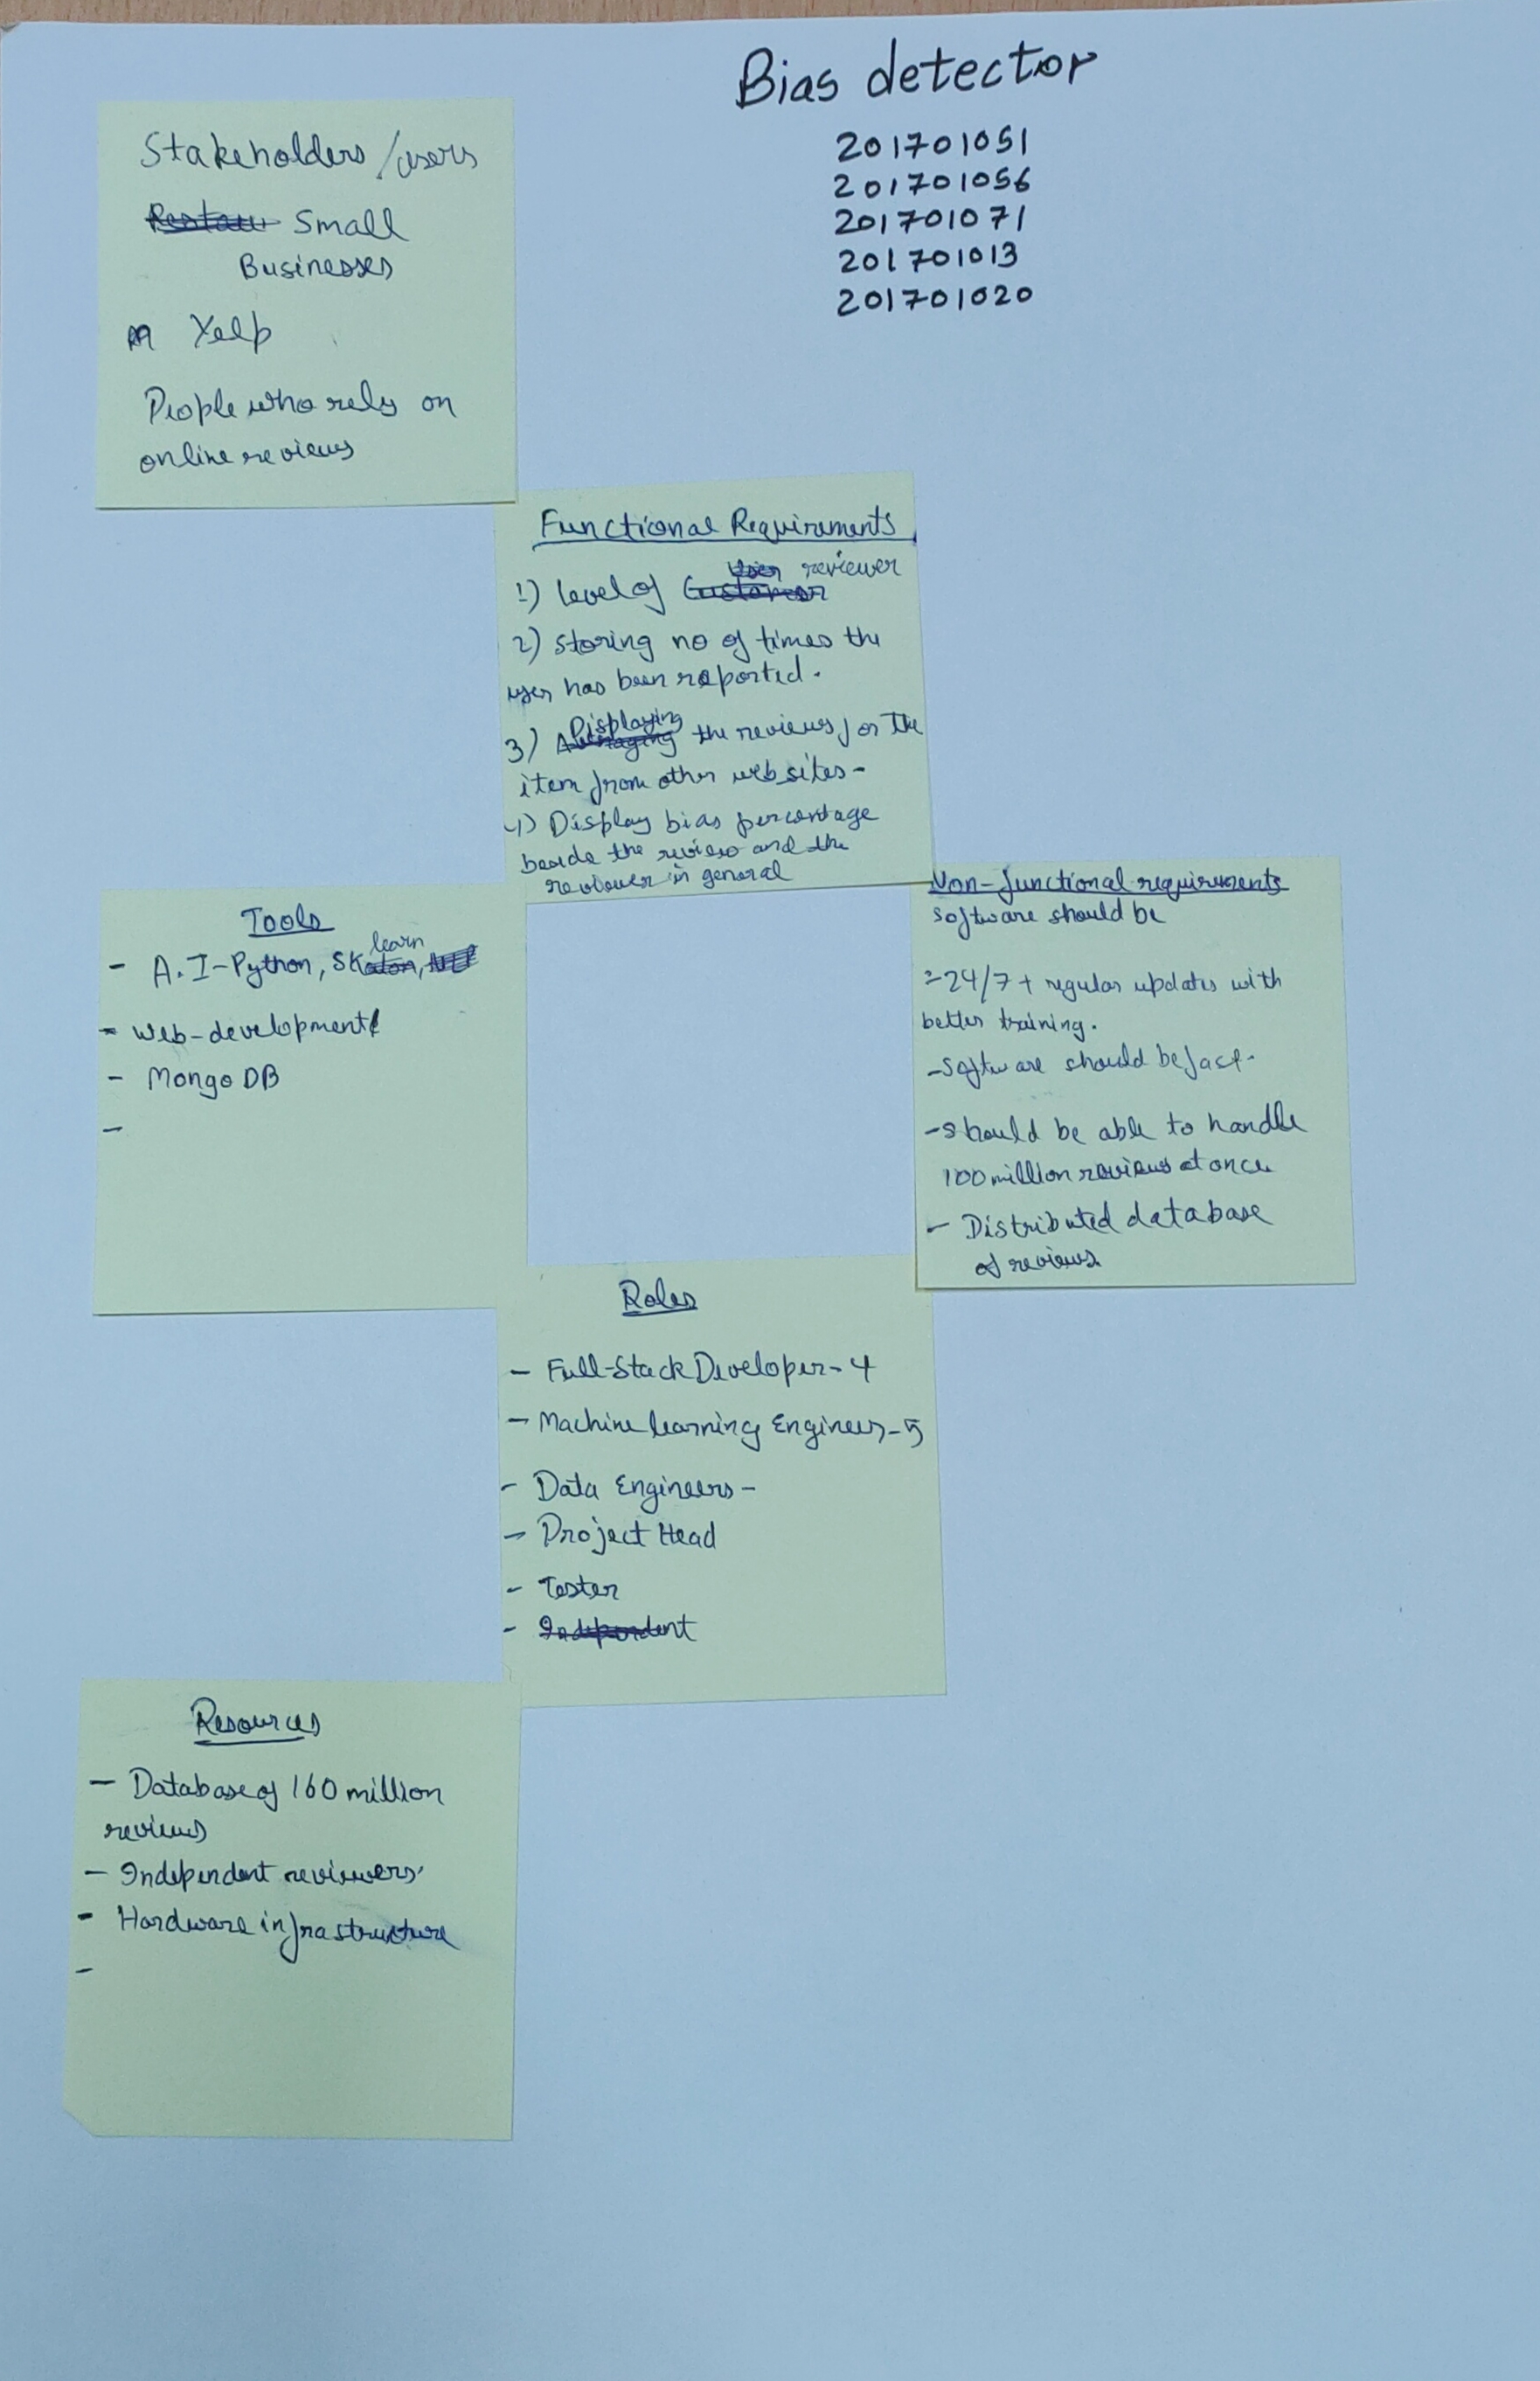 Bias detector
201701051
201701056
201701071
201701013
201701020
Stakeholders/users
Small
Businesses
Yelp
People who rely on
online reviews
Functional Requirements
User reviewer
1) level of Customer
2) storing no of times the
user has been reported.
Displaying
3) Averaging the reviews for the
item from other websites-
4) Display bias percentage
beside the review and the
reviewer in general
Non-functional requirements
software should be
-24/7 + regular updates with
better training.
-Software should be fast.
-should be able to handle
100 million reviews at once
- Distributed database
of reviews.
Tools
learn
- A.I-Python, SK
- Web-development
- Mongo DB
-
Roles
- Full-Stack Developer-4
- Machine learning Engineer-5
- Data Engineers-
- Project Head
- Tester
- Independent
Resources
- Database of 160 million
reviews
- Independent reviewers
- Hardware infrastructure
-